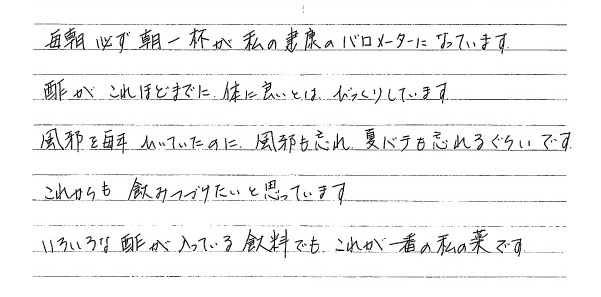 毎朝必ず朝一杯が私の健康のバロメーターになっています
酢がこれほどまでに体に良いとは、びっくりしています
風邪を毎年ひいていたのに、風邪も忘れ、夏バテも忘れるぐらいです
これからも飲みつづけたいと思っています
いろいろな酢が入っている飲料でも、これが一番の私の薬です